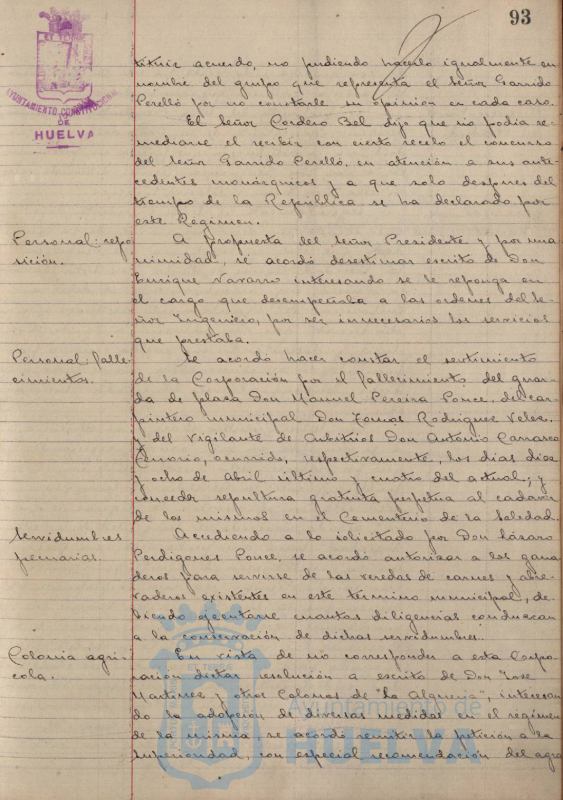 93
AYUNTAMIENTO CONSTITUCIONAL
DE
HUELVA
tituir acuerdo, no pudiendo hacerlo igualmente en
nombre del grupo que representa el Señor Garrido
Perelló por no constarle su opinion en cada caso.
El Señor Cordero Bel dijo que no podia re-
mediarse el recibir con cierto recelo el concurso
del Señor Garrido Perelló, en atención a sus ante-
cedentes monárquicos y a que solo despues del
tiempo de la República se ha declarado por
este Regimen.
Personal: repo
sición.
A propuesta del Señor Presidente y por una-
nimidad, se acordó desestimar escrito de Don
Enrique Navarro interesando se le reponga en
el cargo que desempeñaba a las ordenes del Se-
ñor Ingeniero, por ser innecesarios los servicios
que prestaba.
Personal: falle-
cimientos.
Se acordó hacer constar el sentimiento
de la Corporación por el fallecimiento del guar-
da de plaza Don Manuel Pereira Ponce, del car-
pintero municipal Don Tomas Rodriguez Velez.
y del Vigilante de Arbitrios Don Antonio Carrasco
Tenorio, ocurrido, respectivamente, los dias diez
y ocho de Abril último y cuatro del actual; y
conceder sepultura gratuita perpetua al cadaver
de los mismos en el Cementerio de la Soledad.
Servidumbres
pecuarias.
Accediendo a lo solicitado por Don Lázaro
Perdigones Ponce, se acordó autorizar a los gana
deros para servirse de las veredas de carnes y abre-
vaderos existentes en este término municipal, de-
biendo ejecutarse cuantas diligencias conduzcan
a la conservación de dichas servidumbres.
Colonia agrí-
cola.
En vista de no corresponder a esta Corpo-
ración dictar resolución a escrito de Don Jose
Martinez y otros Colonos de "La Alqueria", interesan
do la adopcion de diversas medidas en el regimen
de la misma se acordó remitir la petición a la
Superioridad, con especial recomendación del agra
Ayuntamiento de
HUELVA